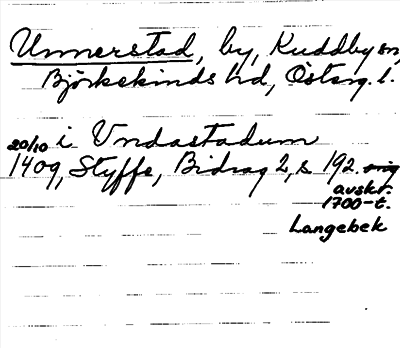 Unnerstad, by, Kuddby sn,
Björkekinds hd, Österg. l.
20/10 i Undastadum
1409, Styffe, Bidrag 2, s 192. orig
avskr.
1700-t.
Langebek